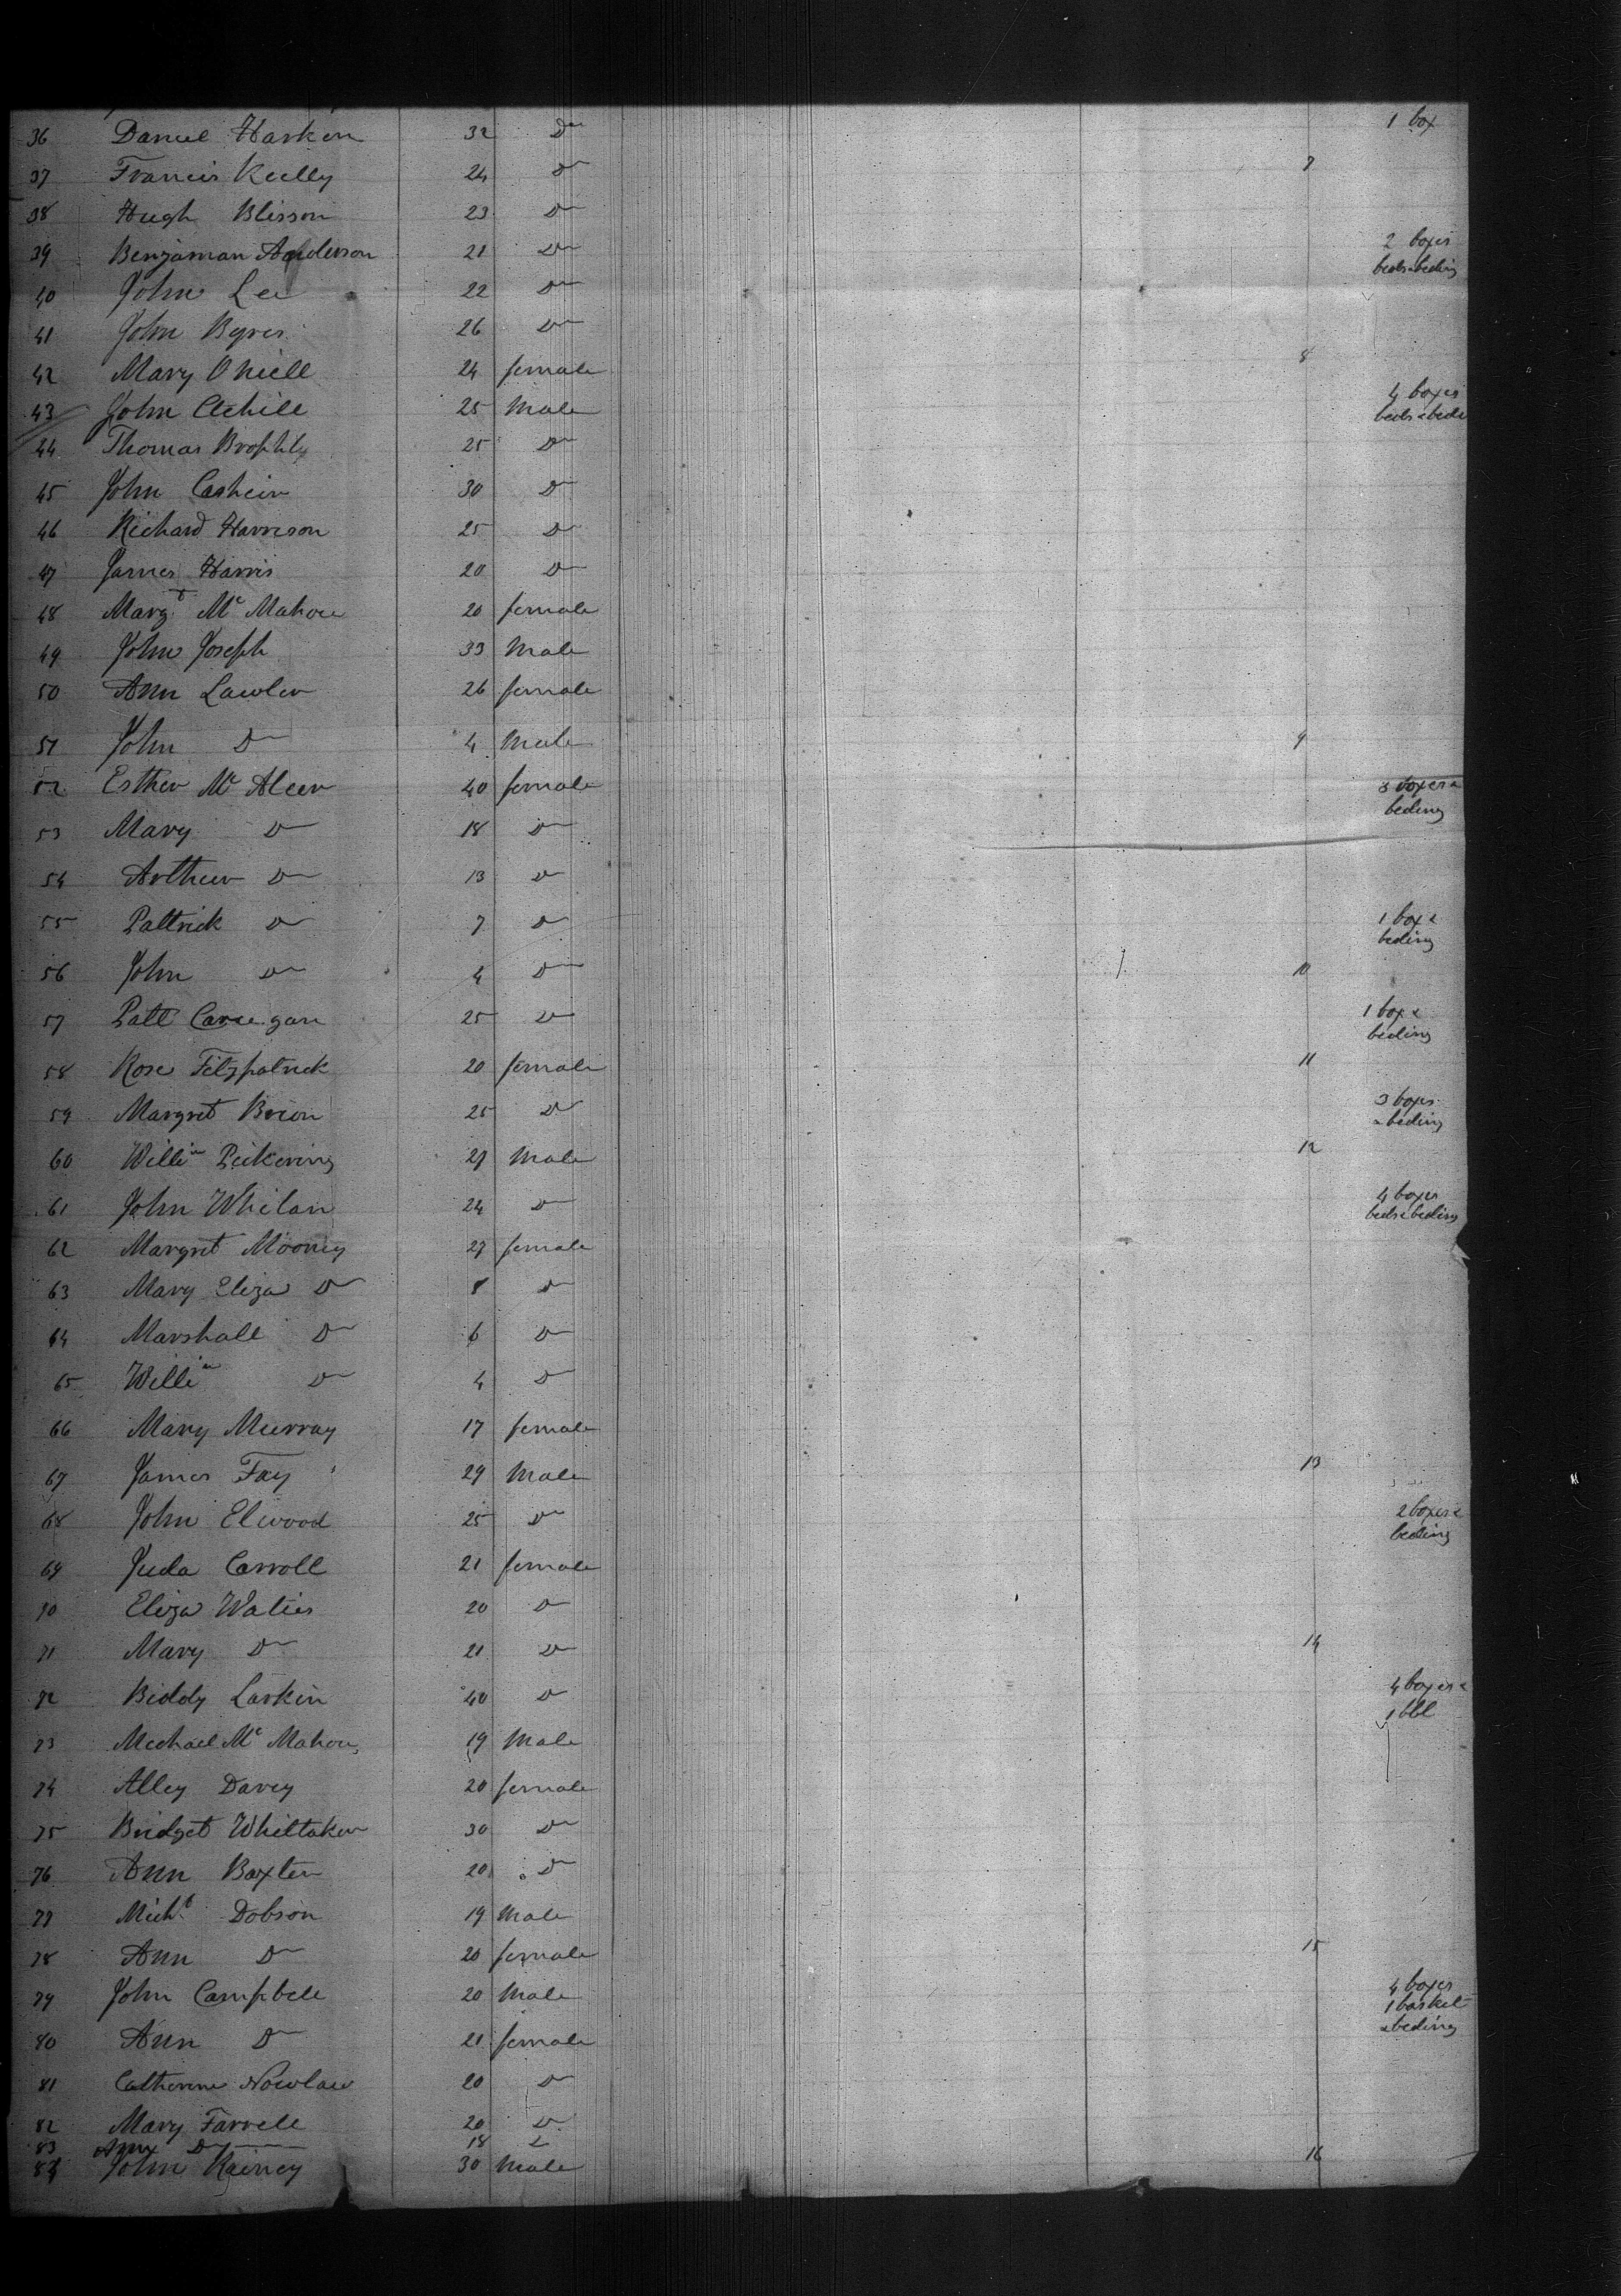 36 Daniel Harken 32 Do 1 box
37 Francis Kielly 24 Do 7
38 Hugh Blisson 23 Do
39 Benjaman Anderson 21 Do 2 boxes
beds & beding
40 John Lee 22 Do
41 John Byres 26 Do
42 Mary O Niell 24 female 8
43 John Cahill 25 Male 4 boxes
beds & bedi
44 Thomas Brophty 25 Do
45 John Cashein 30 Do
46 Richard Harrison 25 Do
47 James Harris 20 Do
48 Margt Mc Mahon 20 female
49 John Joseph 33 Male
50 Ann Lawler 26 female
51 John Do 4 Male 9
52 Esther Mc Aleer 40 female 3 boxes &
beding
53 Mary Do 18 Do
54 Arthur Do 13 Do
55 Pattrick Do 7 Do 1 box &
beding
56 John Do 4 Do 10
57 Patt Carrigan 25 Do 1 box &
beding
58 Rose Fitzpatrick 20 female 11
59 Margret Brion 25 Do 3 boxes
& beding
60 Willim Pickering 27 Male 12
61 John Whilan 24 Do 4 boxes
beds & beding
62 Margret Mooney 27 female
63 Mary Eliza Do 8 Do
64 Marshall Do 6 Do
65 Willim Do 4 Do
66 Mary Murray 17 female
67 James Fay 29 Male 13
68 John Elwood 25 Do 2 boxes &
beding
69 Juda Carroll 21 female
70 Eliza Waties 20 Do
71 Mary Do 21 Do 14
72 Biddy Larkin 40 Do 4 boxes &
1 bbl
73 Michael Mc Mahon 19 Male
74 Alley Davey 20 female
75 Bridget Whittaker 30 Do
76 Ann Baxter 20 Do
77 Michl Dobson 19 Male
78 Ann Do 20 female 15
79 John Campbell 20 Male 4 boxes
1 basket
& beding
80 Ann Do 21 female
81 Catherine Nowlan 20 Do
82 Mary Farrell 20 Do
83 Ann Do 18 Do
84 John Rainey 30 Male 16